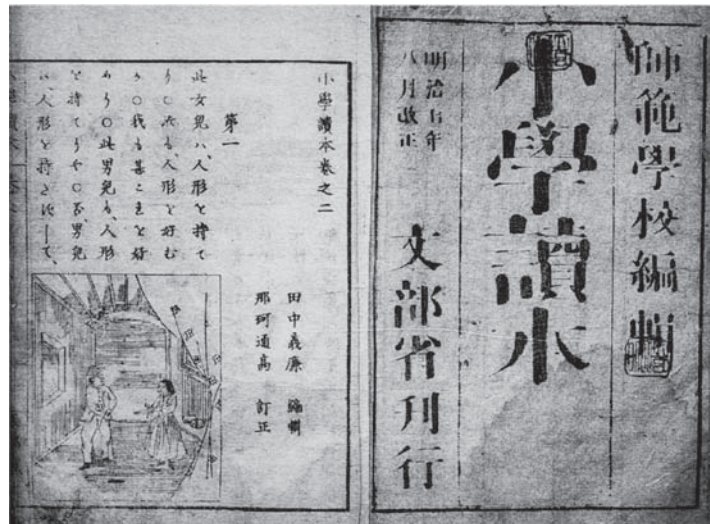 師範學校編輯
小學讀本
明治七年
八月改正
文部省刊行
小學讀本卷之二
田中義廉 編輯
那珂通高 訂正
第一
此女兒ハ、人形を持て
り○汝も、人形を好む
か○我も甚これを好
めり○此男兒も、人形
を持てりや○否、男兒
ハ、人形を持たずして、